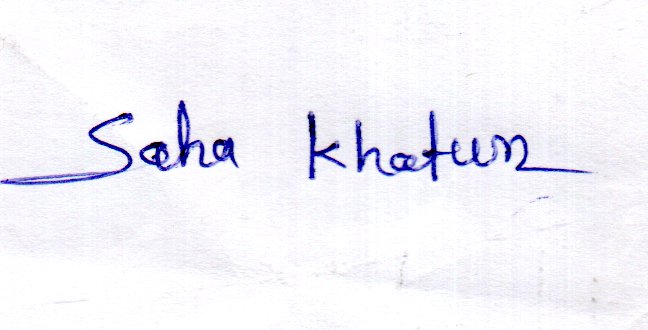 Saha Khatun